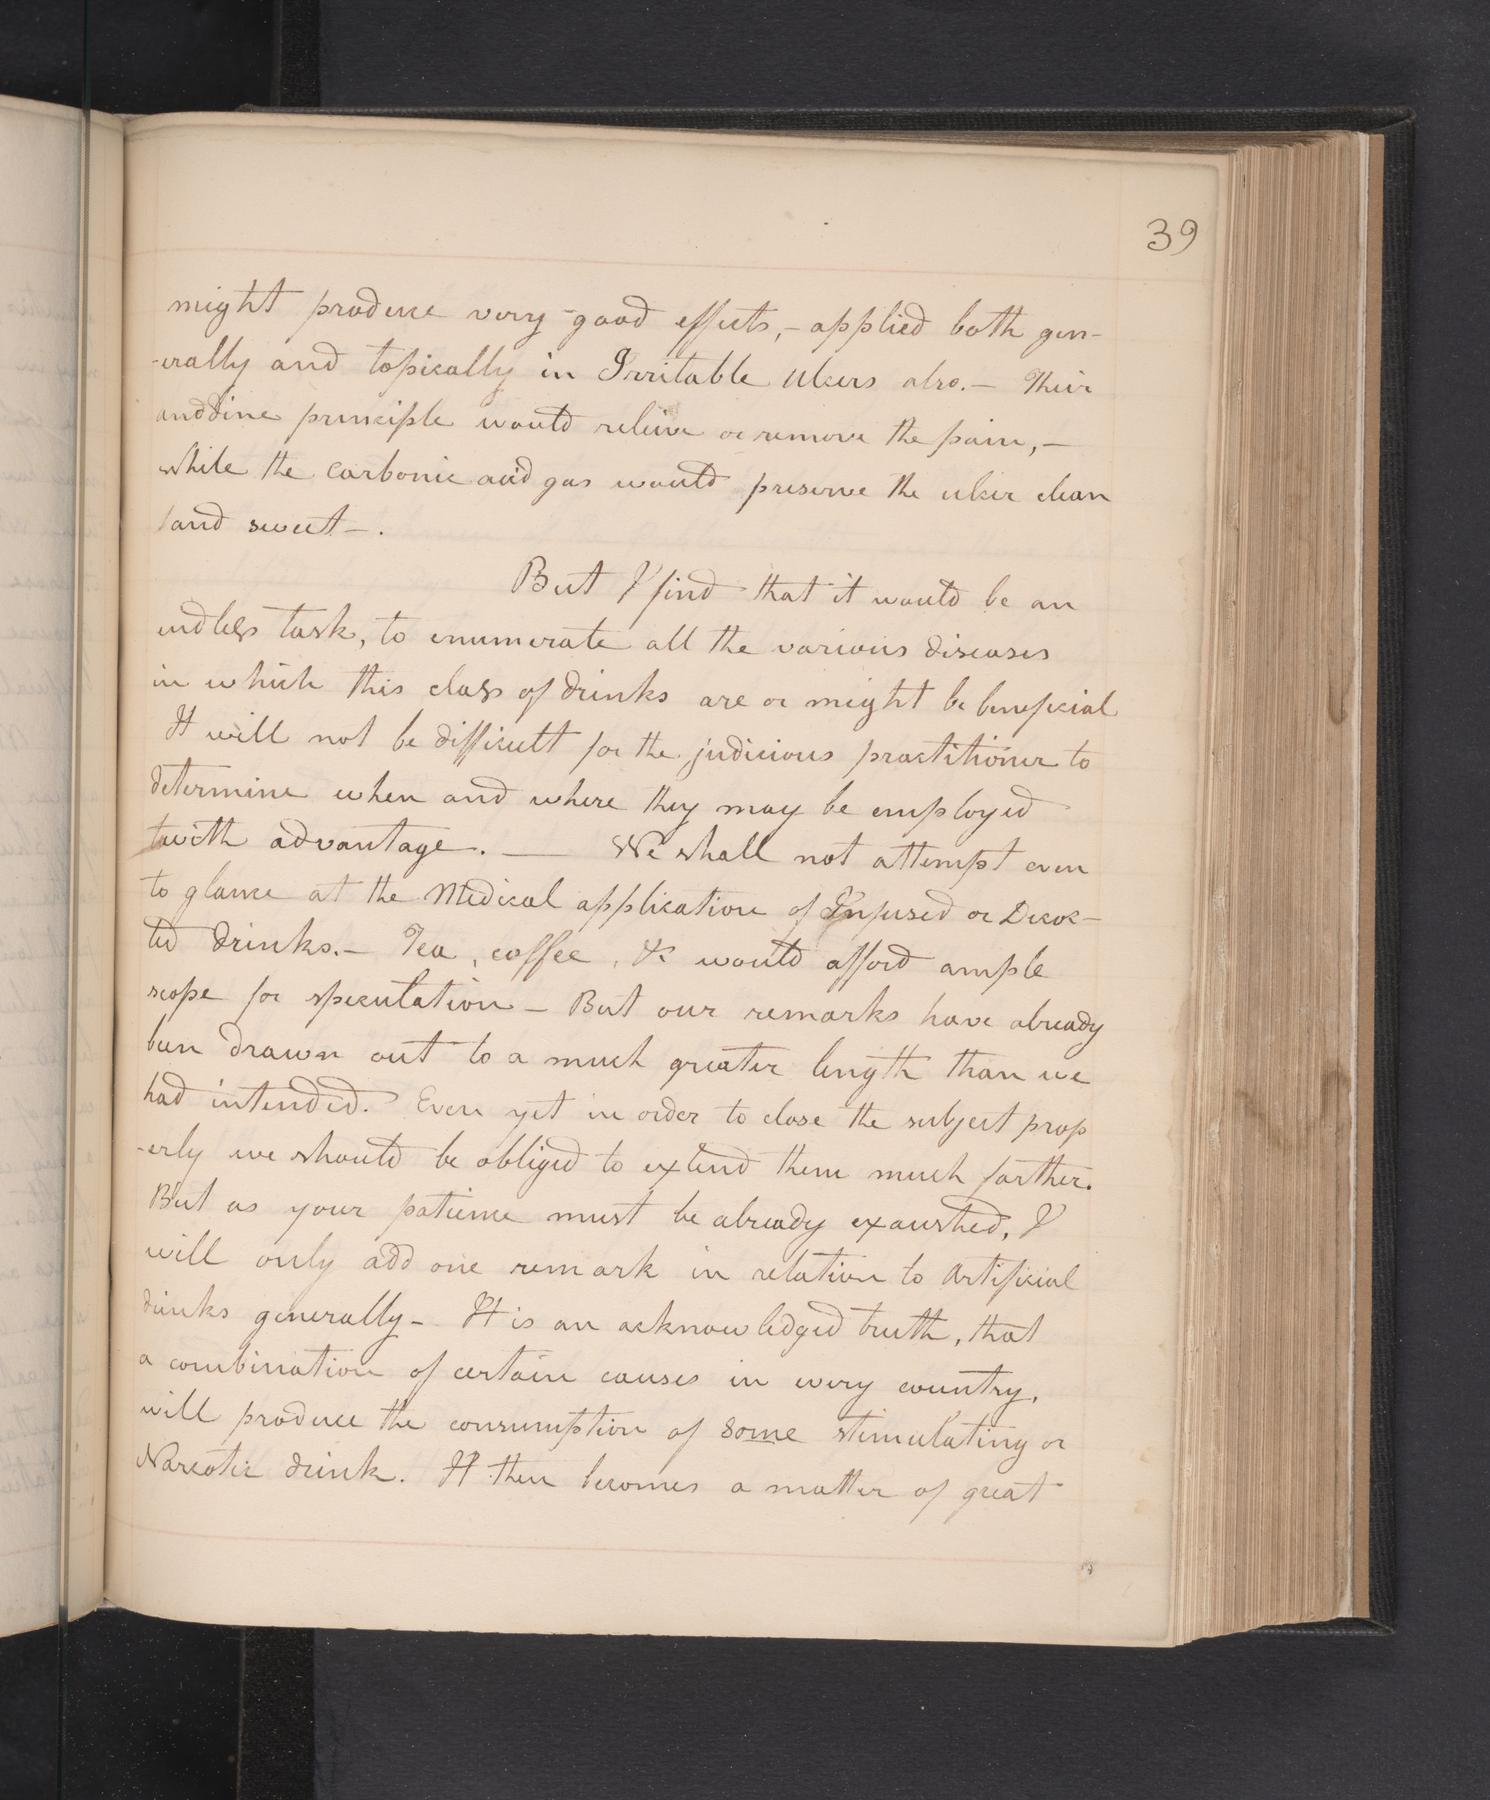 39
might produce very good effects, - applied both gen-
-erally and topically in Irritable Ulcers also. - Their
anddine principle would relieve or remove the pain, -
while the carbonic acid gas would preserve the ulcer clean
and sweet - .
But I find that it would be an
endless task, to enumerate all the various diseases
in which this class of drinks are or might be beneficial
It will not be difficult for the judicious practitioner to
determine when and where they may be employed
with advantage. — We shall not attempt even
to glance at the Medical application of Infused or Decoc-
ted drinks. - Tea, coffee, &c would afford ample
scope for speculation - But our remarks have already
been drawn out to a much greater length than we
had intended. Even yet in order to close the subject prop
-erly we should be obliged to extend them much farther.
But as your patience must be already exausted, I
will only add one remark in relation to Artificial
drinks generally - It is an acknowledged truth, that
a combination of certain causes in every country,
will produce the consumption of some stimulating or
Narcotic drink. It then becomes a matter of great